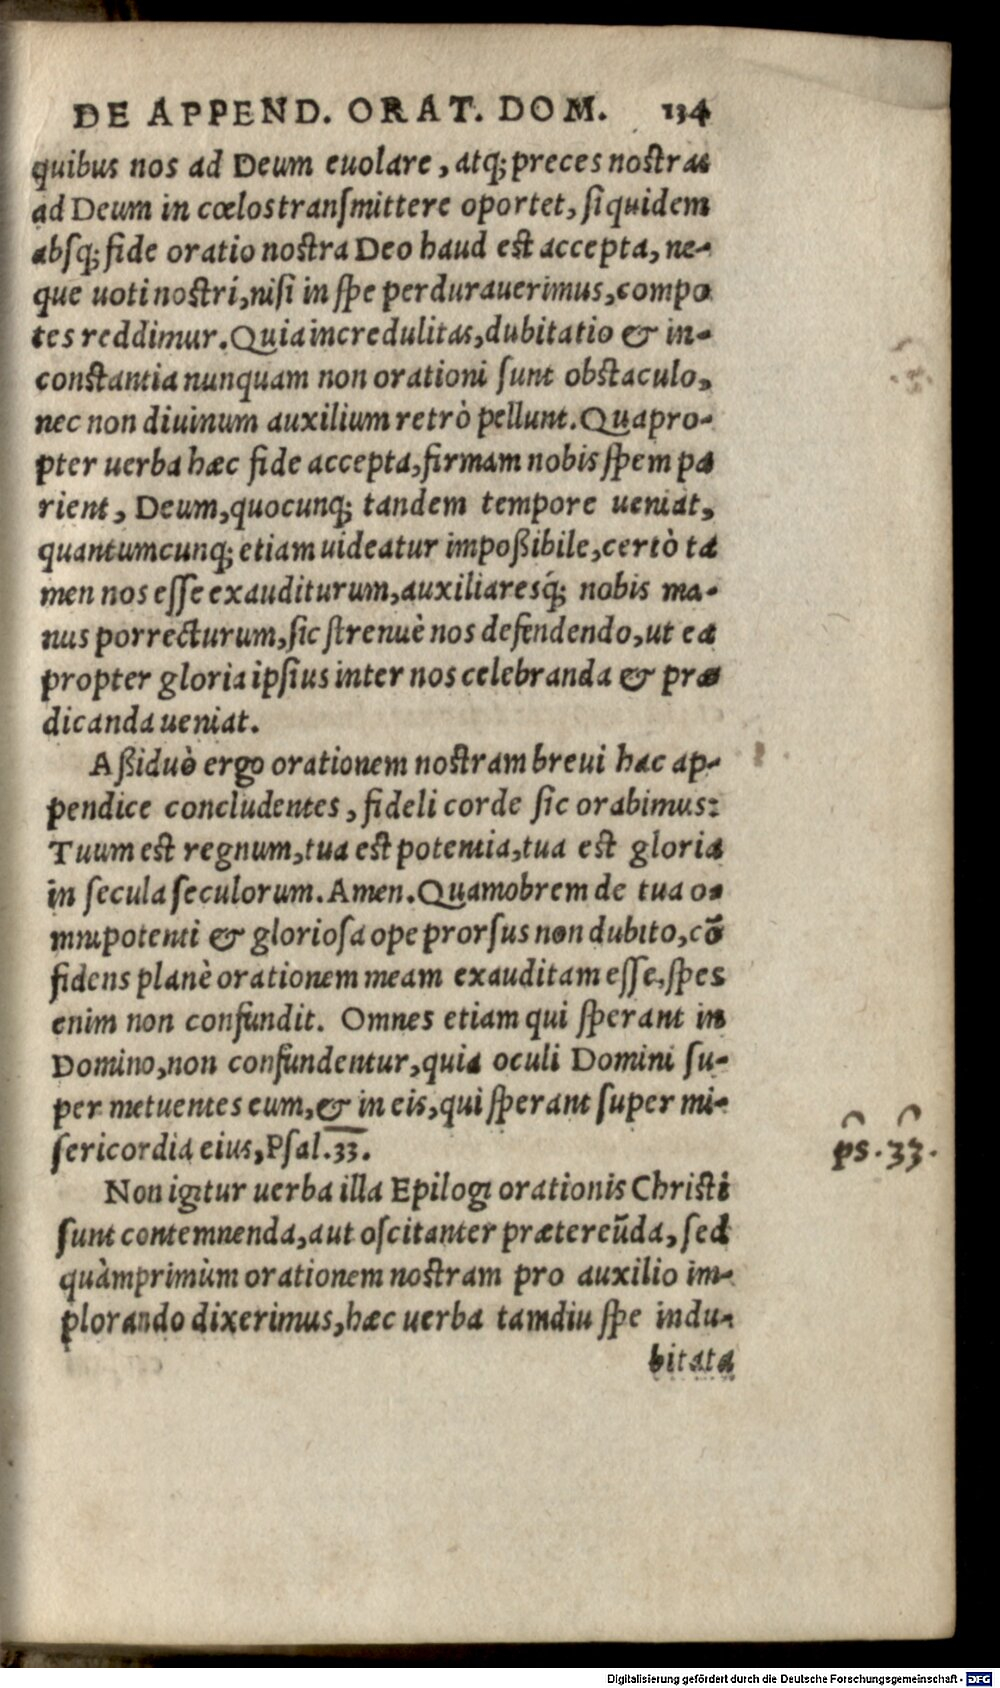 DE APPEND. ORAT. DOM. 134
quibus nos ad Deum euolare, atq; preces nostras
ad Deum in cœlos transſmittere oportet, ſiquidem
absq; fide oratio nostra Deo haud est accepta, ne-
que uoti nostri, niſi in ſpe perdurauerimus, compo
tes reddimur. Quia incredulitas, dubitatio & in-
constantia nunquam non orationi ſunt obstaculo,
nec non diuinum auxilium retrò pellunt. Quapro-
pter uerba hæc fide accepta, firmam nobis ſpem pa
rient, Deum, quocunq; tandem tempore ueniat,
quantumcunq; etiam uideatur impoßibile, certò ta
men nos eſſe exauditurum, auxiliaresq́; nobis ma-
nus porrecturum, ſic ſtrenuè nos defendendo, ut ea
propter gloria ipſius inter nos celebranda & præ
dicanda ueniat.
Aßiduò ergo orationem nostram breui hac ap-
pendice concludentes, fideli corde ſic orabimus:
Tuum est regnum, tua est potentia, tua est gloria
in ſecula ſeculorum. Amen. Quamobrem de tua o-
mnipotenti & glorioſa ope prorſus non dubito, cō
fidens planè orationem meam exauditam eſſe, ſpes
enim non confundit. Omnes etiam qui ſperant in
Domino, non confundentur, quia oculi Domini ſu-
per metuentes eum, & in eis, qui ſperant ſuper mi-
ſericordia eius, Pſal. 33.
ps. 33.
Non igitur uerba illa Epilogi orationis Christi
ſunt contemnenda, aut oſcitanter prætereūda, ſed
quàmprimùm orationem nostram pro auxilio im-
plorando dixerimus, hæc uerba tamdiu ſpe indu-
bitata
Digitalisierung gefördert durch die Deutsche Forschungsgemeinschaft - DFG